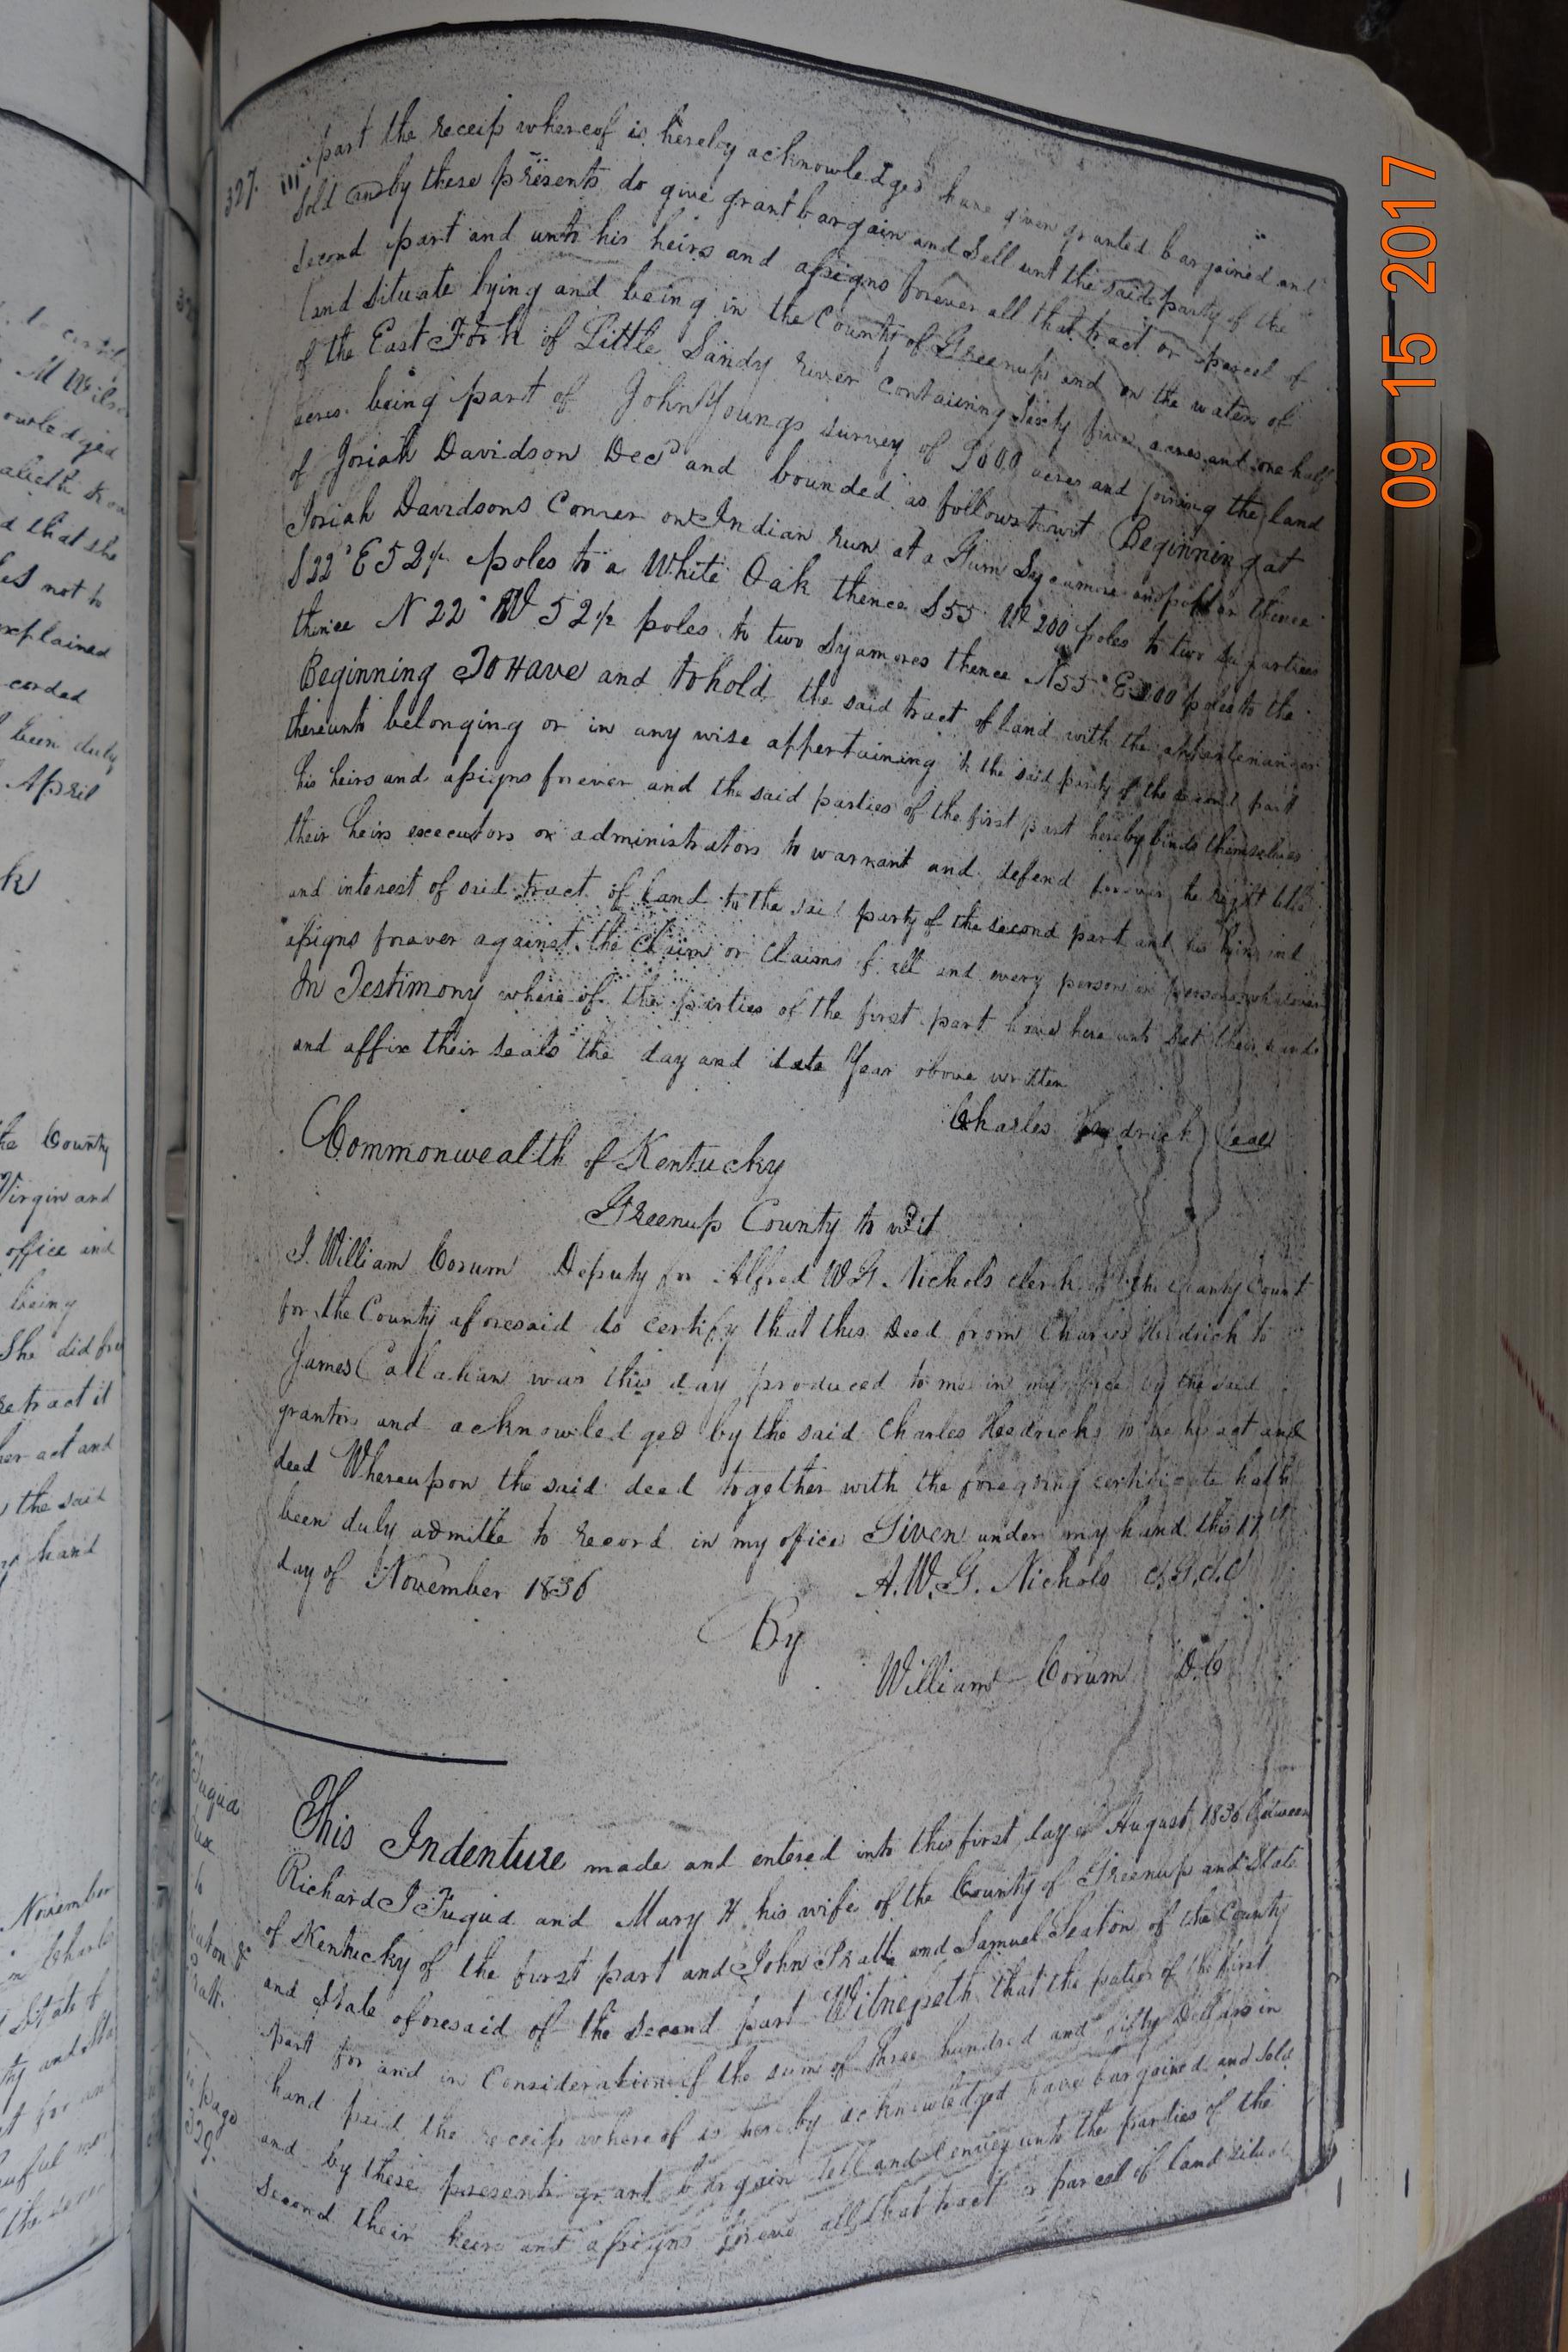 327.
part the receip whereof is hereby acknowledged have given granted bargained and
sold and by these presents do give grant bargain and sell unt the said party of the
second part and unto his heirs and assigns forever all that tract or parcel of
land situate lying and being in the County of Greenup and on the waters of
of the East Fork of Little Sandy river containing Sixty five acres and one half
acres being part of John Youngs survey of acres and joining the land
of Josiah Davidson Decd and bounded as follows towit Beginning at
Josiah Davidsons Corner on Indian run at a Gum Sycamore and thence
S 22° E 52½ poles to a White Oak thence S 55 W 200 poles to two
thence N 22° W 52½ poles to two Sycamores thence N 55° E 200 poles to the
Beginning To Have and to hold the said tract of land with the appertenances
thereunto belonging or in any wise appertaining to the said party of the second part
his heirs and assigns forever and the said parties of the first part hereby binds themselves
their heirs executors or administrators to warrant and defend forever the right title
and interest of said tract of land to the said party of the second part and his heirs and
assigns forever against the claim or claims of all and every person or persons whatsoever
In Testimony where of the parties of the first part have here unto set their hands
and affix their seals the day and date Year above written
Charles Hedrick Seal
Commonwealth of Kentucky
Greenup County to wit
I William Corum Deputy for Alfred W G Nichols clerk of the County Court
for the County aforesaid do certify that this Deed from Charles Hedrick to
James Callahan was this day produced to me in my office by the said
grantor and acknowledged by the said Charles Hedricks to be his act and
deed Whereupon the said deed together with the foregoing certificate hath
been duly admitte to record in my office Given under my hand this
day of November 1836
A. W. G. Nichols C.G.C.C
By
William Corum D.C
Fuqua
ux
to
eaton &
Pratt.
page
329.
This Indenture made and entered into this first day of August 1836 Between
Richard J Fuqua and Mary H his wife of the County of Greenup and State
of Kentucky of the first part and John Pratt and Samuel Seaton of the County
and State aforesaid of the second part Witnesseth that the paties of the first
part for and in Consideration of the sum of three hundred and fifty Dollars in
hand paid the receip where of is here by acknowledged have bargained and sold
and by these presents grant bargain Sell and Convey unto the parties of the
second their heirs and assigns foreve all that tract or parcel of land situat
09 15 2017
M Wilso
owledged
d that she
not to
explained
corded
been duly
April
the County
Virgin and
office and
being
She did fre
retract it
her act and
the said
hand
November
Charls
State of